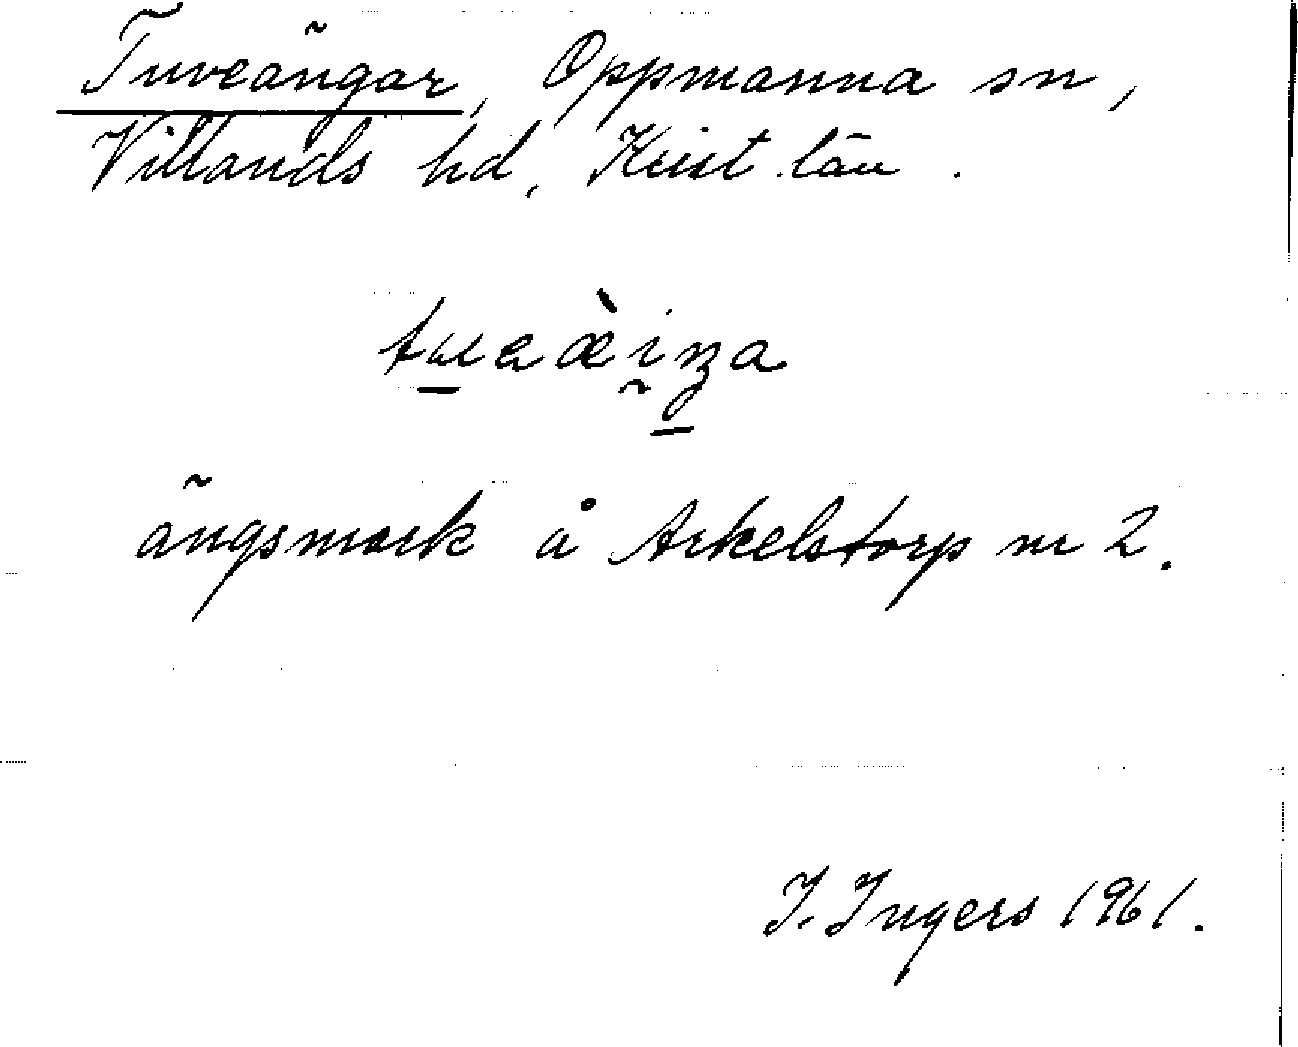 Tuveängar, Oppmanna sn,
Villands hd, Krist. län.
ängsmark å Arkelstorp nr 2.
I. Ingers 1961.